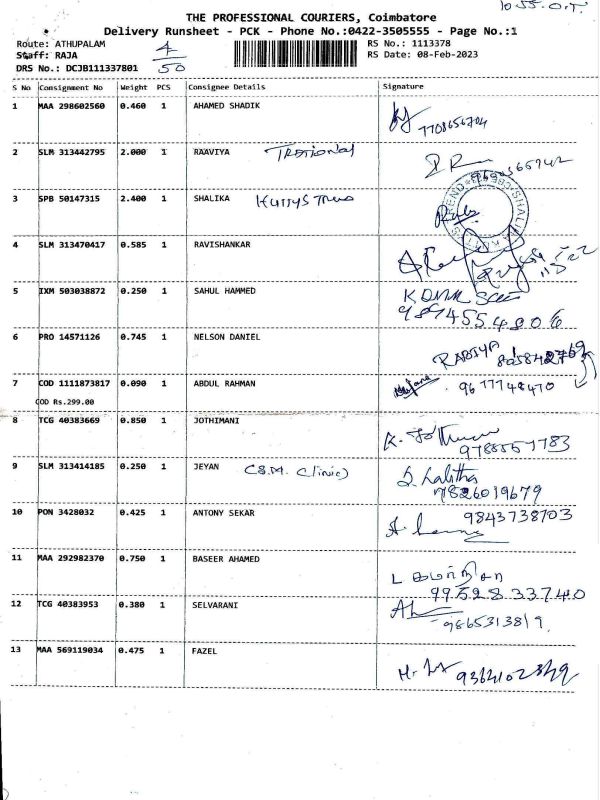 10-55. O.T.
THE PROFESSIONAL COURIERS, Coimbatore
Delivery Runsheet - PCK - Phone No.:0422-3505555 - Page No.:1
Route: ATHUPALAM 4 RS No.: 1113378
Staff: RAJA 50 RS Date: 08-Feb-2023
DRS No.: DCJB111337801
S No Consignment No Weight PCS Consignee Details Signature
1 MAA 298602560 0.460 1 AHAMED SHADIK
7708656704
2 SLM 313442795 2.000 1 RAAVIYA
3 SPB 50147315 2.400 1 SHALIKA
4 SLM 313470417 0.585 1 RAVISHANKAR
5 IXM 503038872 0.250 1 SAHUL HAMMED
9874554806
6 PRO 14571126 0.745 1 NELSON DANIEL
RABIYA
7 COD 1111873817 0.090 1 ABDUL RAHMAN 9677748470
COD Rs.299.00
8 TCG 40383669 0.850 1 JOTHIMANI
9788557783
9 SLM 313414185 0.250 1 JEYAN (S.M. Clinic) S. Lalitha
7826019679
10 PON 3428032 0.425 1 ANTONY SEKAR 9843738703
11 MAA 292982370 0.750 1 BASEER AHAMED
9952833740
12 TCG 40383953 0.380 1 SELVARANI
9865313819
13 MAA 569119034 0.475 1 FAZEL